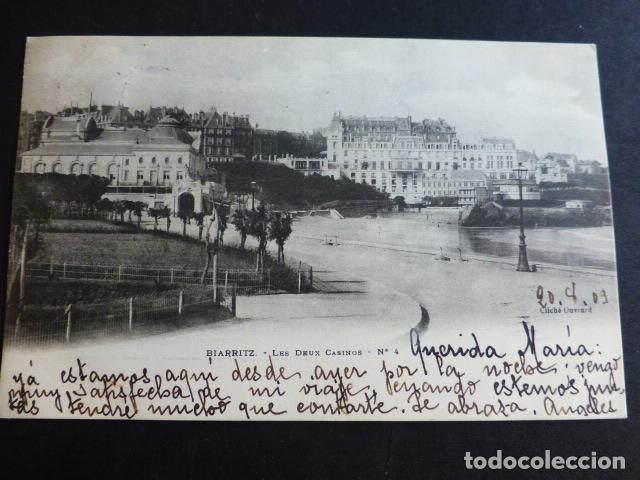 20.4.03
Cliché Ouvrard
BIARRITZ. - LES DEUX CASINOS - N° 4
Querida María:
ya estamos aquí desde ayer por la noche. vengo
muy satisfecha de mi viaje, cuando estemos jun-
tas tendre mucho que contarte. Te abraza. Angeles
todocoleccion.net